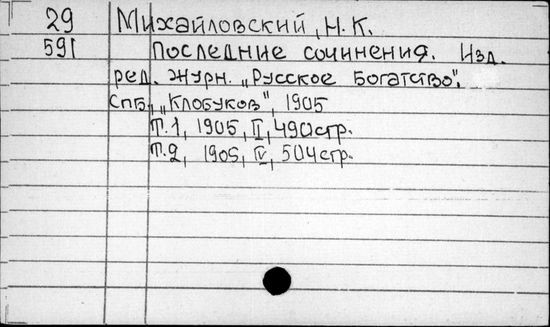 29 Михайловский, Н.К.
591 Последние сочинения. Изд.
ред. журн. „Русское Богатство".
Спб, „Клобуков", 1905
Т.1, 1905, II, 490стр.
Т.2, 1905, IV, 504стр.